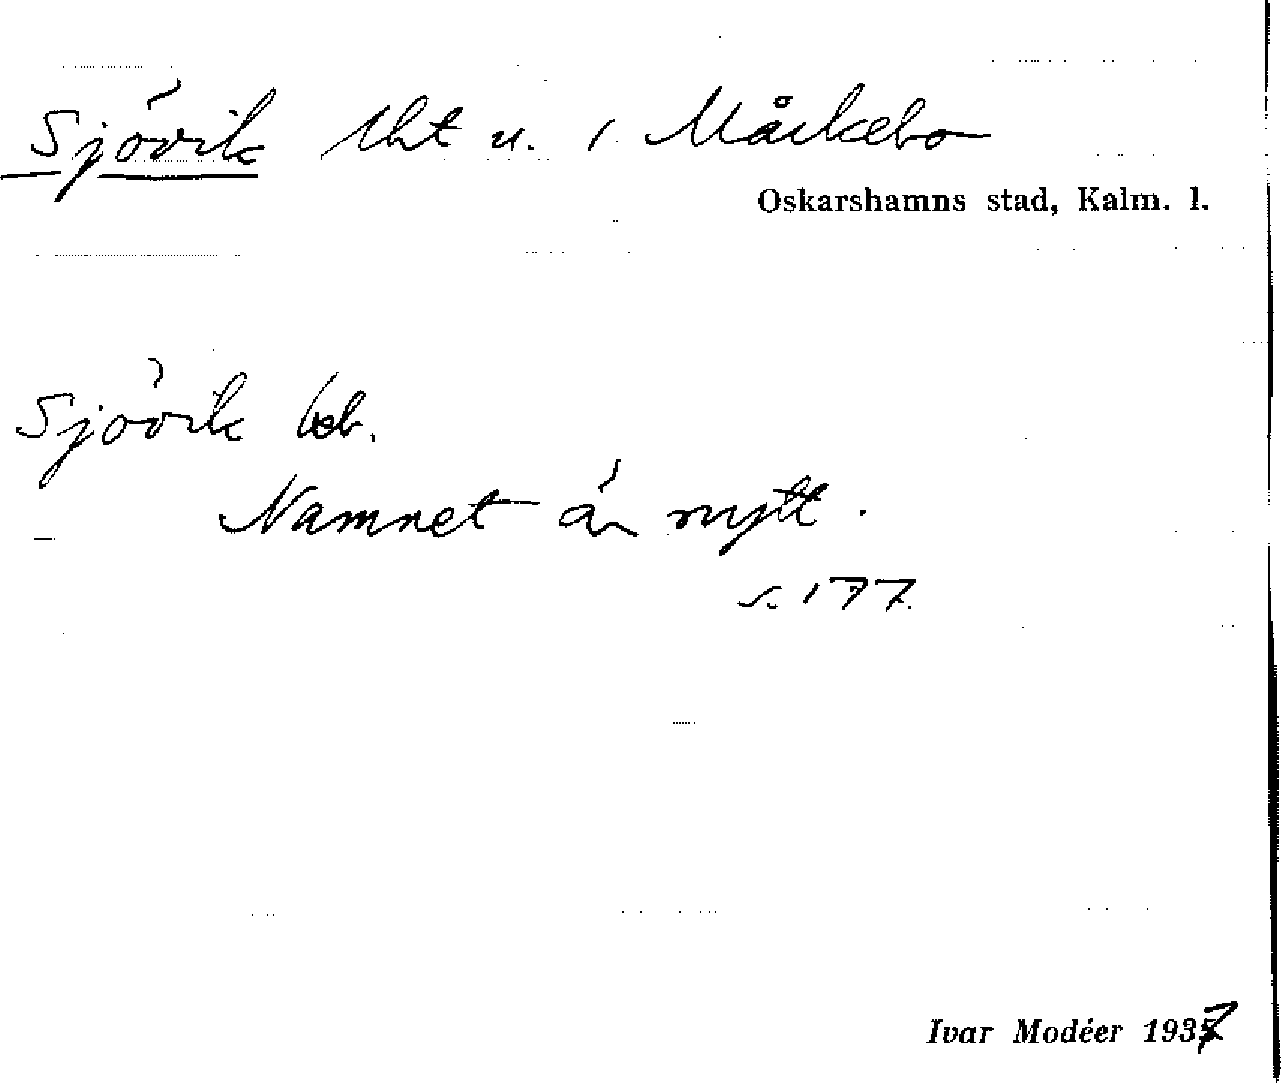 Sjövik lht u. i Måckebo
Oskarshamns stad, Kalm. l.
Sjövik beb.
Namnet är nytt.
s. 177.
Ivar Modéer 1937